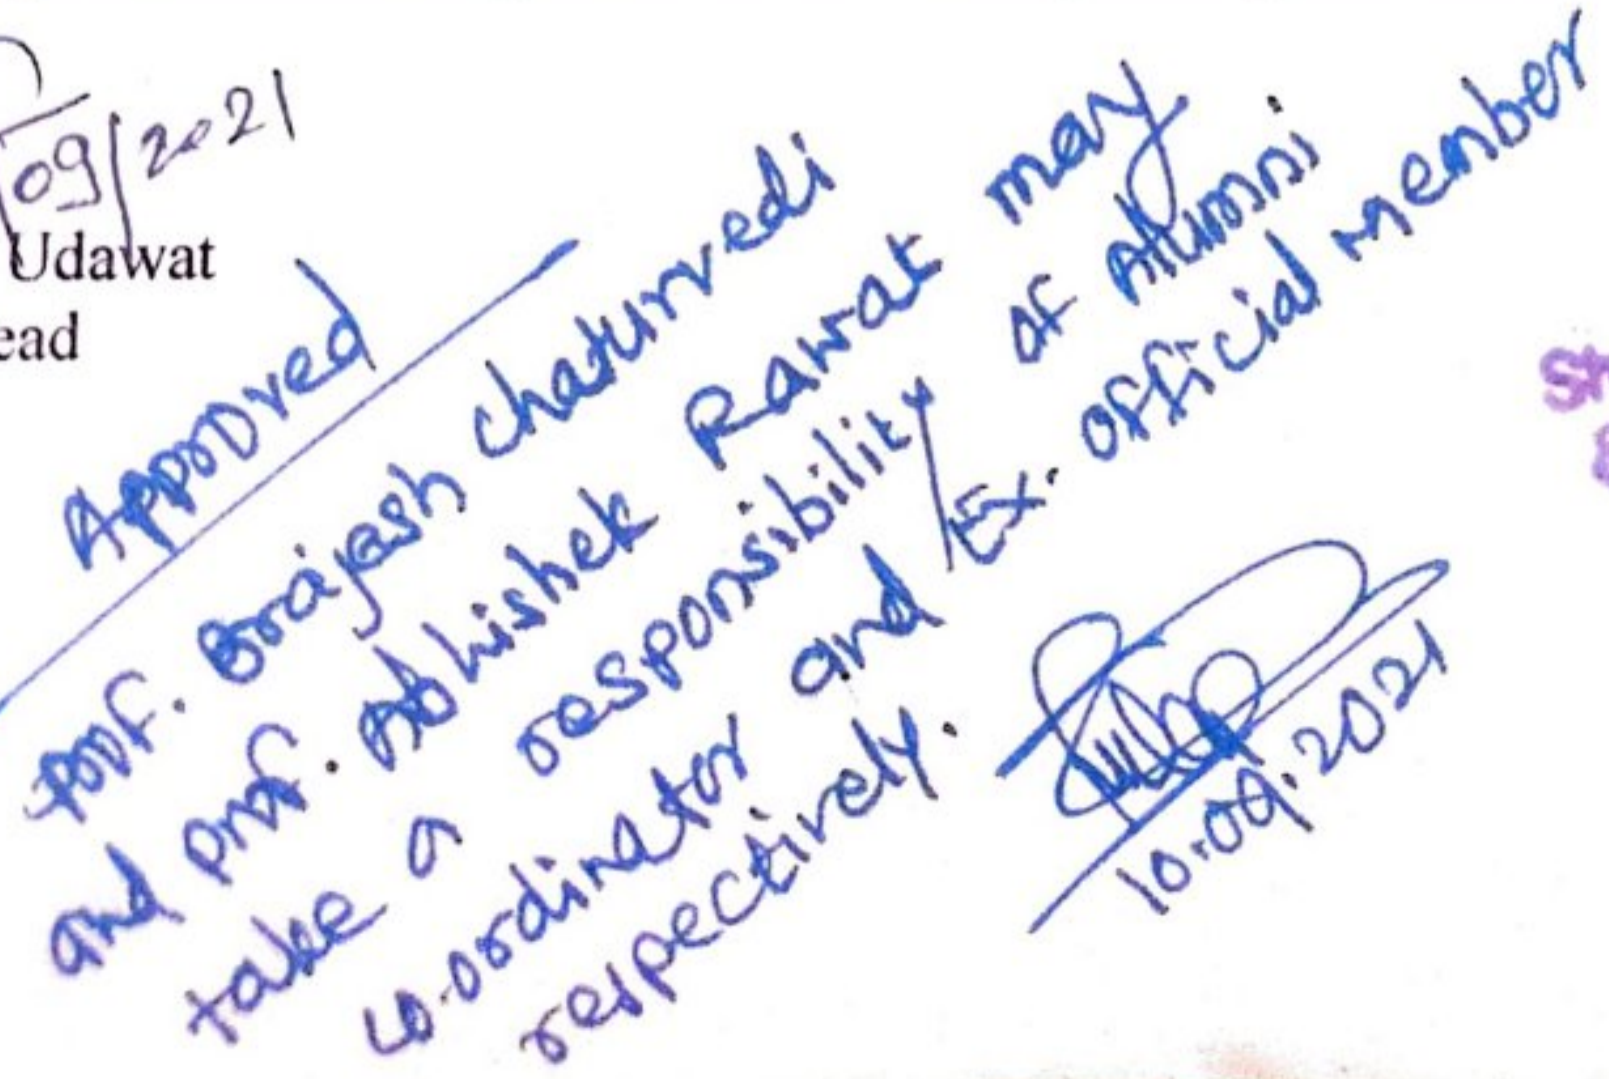 09/2021
Udawat
ead
Approved
Prof. Brajesh chaturvedi
and Prof. Abhishek Rawat may
take a responsibility of Alumni
co-ordinator and /Ex. official Member
respectively.
10.09.2021